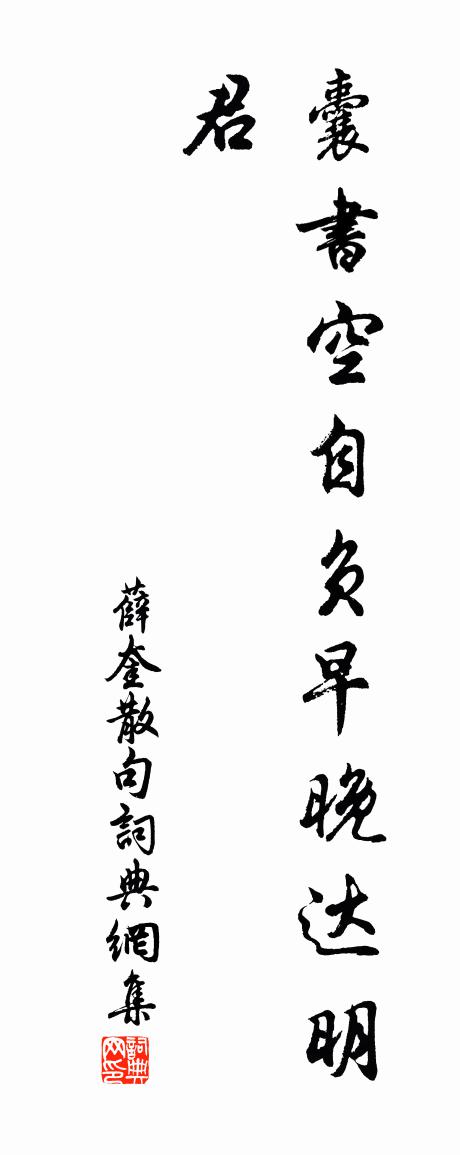 囊书空自负早晚达明
君
薛奎散句詞典網集
詞典网印